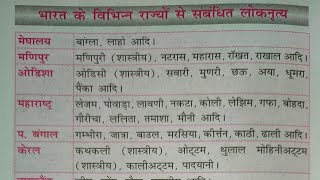 भारत के विभिन्न राज्यों से सबंधित लोकनृत्य
मेघालय बांग्ला, लाहो आदि।
मणिपुर मणिपुरी (शास्त्रीय), नटरास, महारास, राँखत, राखाल आदि।
ओडिशा ओडिसी (शास्त्रीय), सवारी, मुणरी, छऊ, अया, धूमरा,
पैंका आदि।
महाराष्ट्र लेजम, पोवाड़ा, लावणी, नकटा, कोली, लेझिम, गफा, बोहदा,
गौरीचा, ललिता, तमाशा, मौनी आदि।
प. बंगाल गम्भीरा, जात्रा, बाउल, मरसिया, कीर्त्तन, काठी, ढाली आदि।
केरल कथकली (शास्त्रीय), ओट्टम, थुलाल मोहिनीअट्टम
(शास्त्रीय), कालीअट्टम, पादयानी।